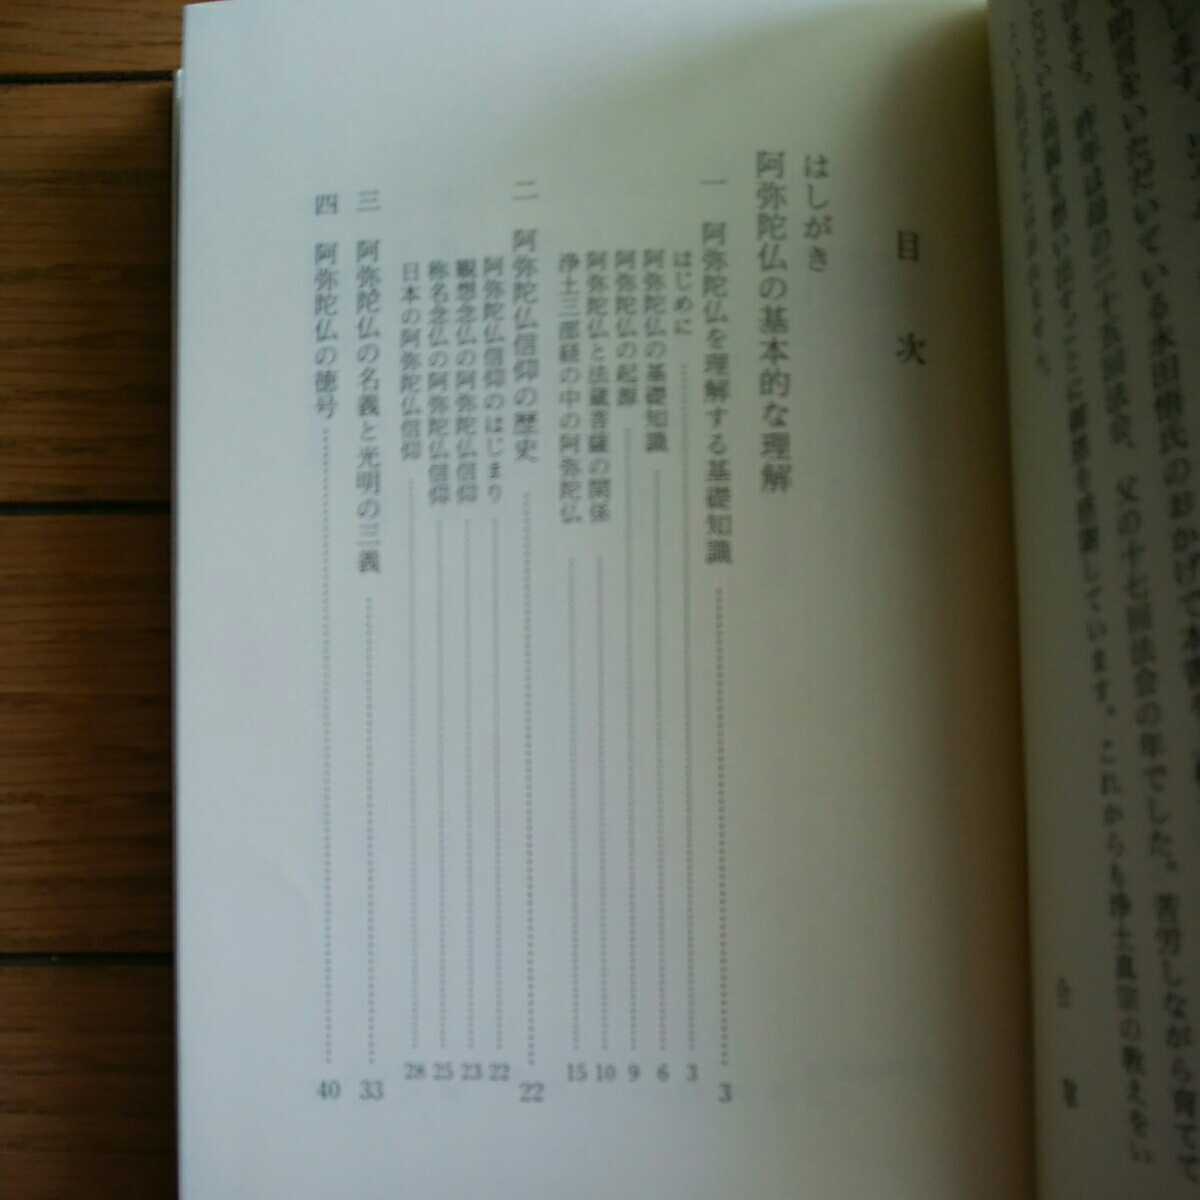 をいただいている永田悟氏のおかげで本書
父の十七回法会の年でした。苦労しながら育てて
しています。これからも浄土真宗の教えをい
合掌
目次
はしがき
阿弥陀仏の基本的な理解
一 阿弥陀仏を理解する基礎知識 3
はじめに 3
阿弥陀仏の基礎知識 6
阿弥陀仏の起源 9
阿弥陀仏と法蔵菩薩の関係 10
浄土三部経の中の阿弥陀仏 15
二 阿弥陀仏信仰の歴史 22
阿弥陀仏信仰のはじまり 22
観想念仏の阿弥陀仏信仰 23
称名念仏の阿弥陀仏信仰 25
日本の阿弥陀仏信仰 28
三 阿弥陀仏の名義と光明の三義 33
四 阿弥陀仏の徳号 40